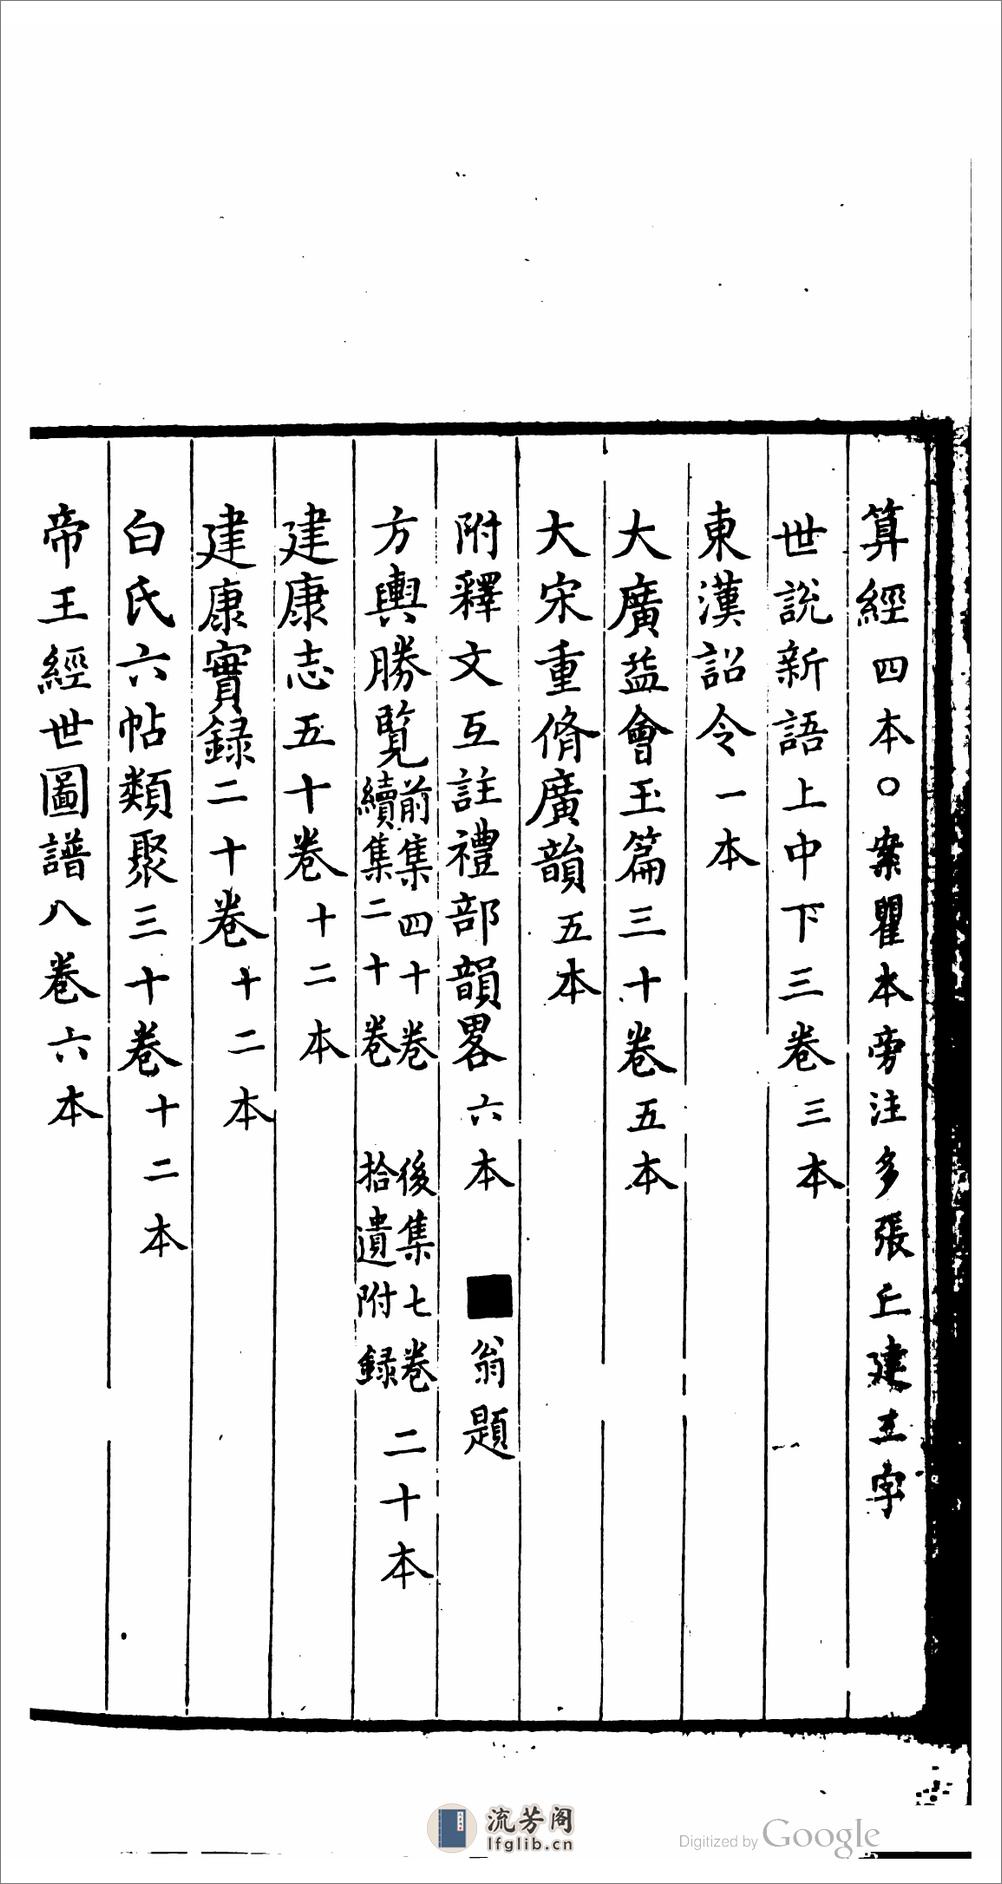 算經四本〇案瞿本旁注多張丘建五字
世說新語上中下三卷三本
東漢詔令一本
大廣益會玉篇三十卷五本
大宋重脩廣韻五本
附釋文互註禮部韻畧六本 ■翁題
方輿勝覽前集四十卷續集二十卷 後集七卷拾遺附錄 二十本
建康志五十卷十二本
建康實録二十卷十二本
白氏六帖類聚三十卷十二本
帝王經世圖譜八卷六本
流芳阁
lfglib.cn
Digitized by Google